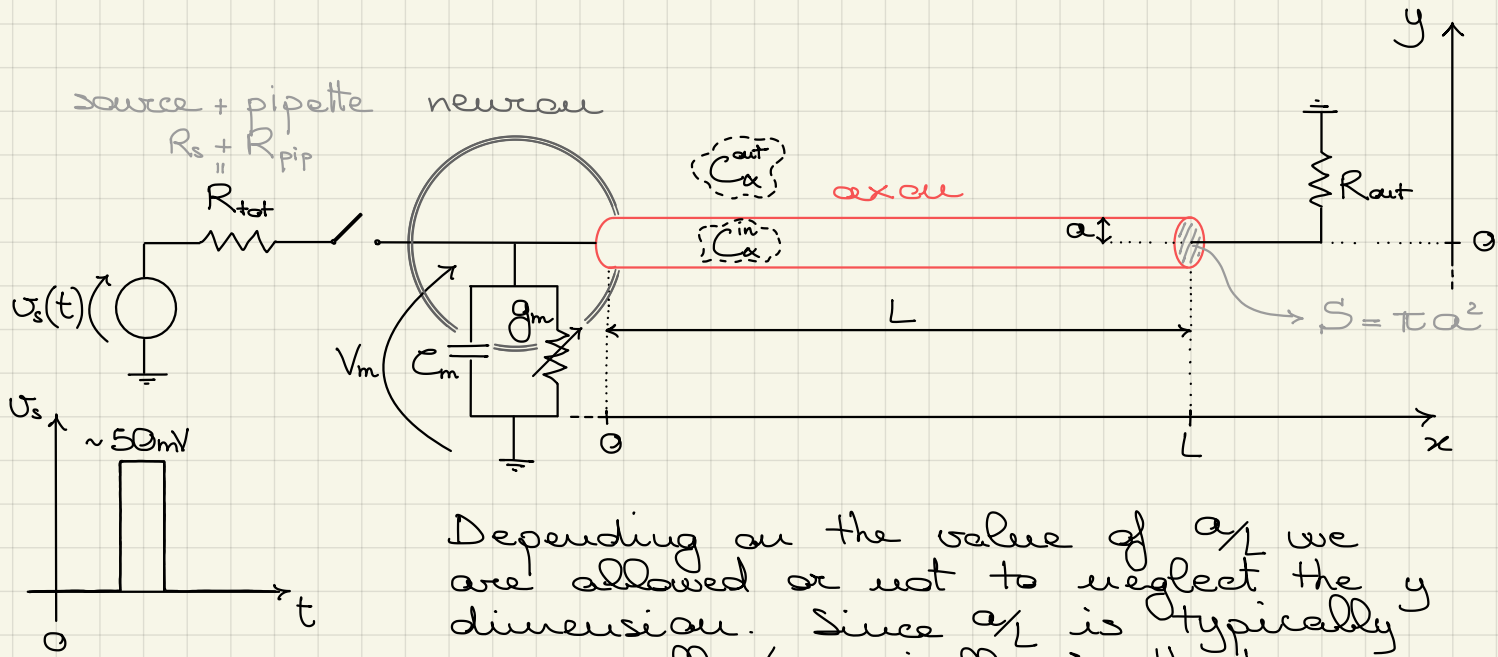 y
source + pipette neuron
R_s + R_pip
"
R_tot
C_α^out
axon
C_α^in
a
R_out
0
v_s(t)
g_m
L
S = πa²
V_m
C_m
v_s
~50mV
0
L
x
t
0
Depending on the value of a/L we
are allowed or not to neglect the y
dimension. Since a/L is typically